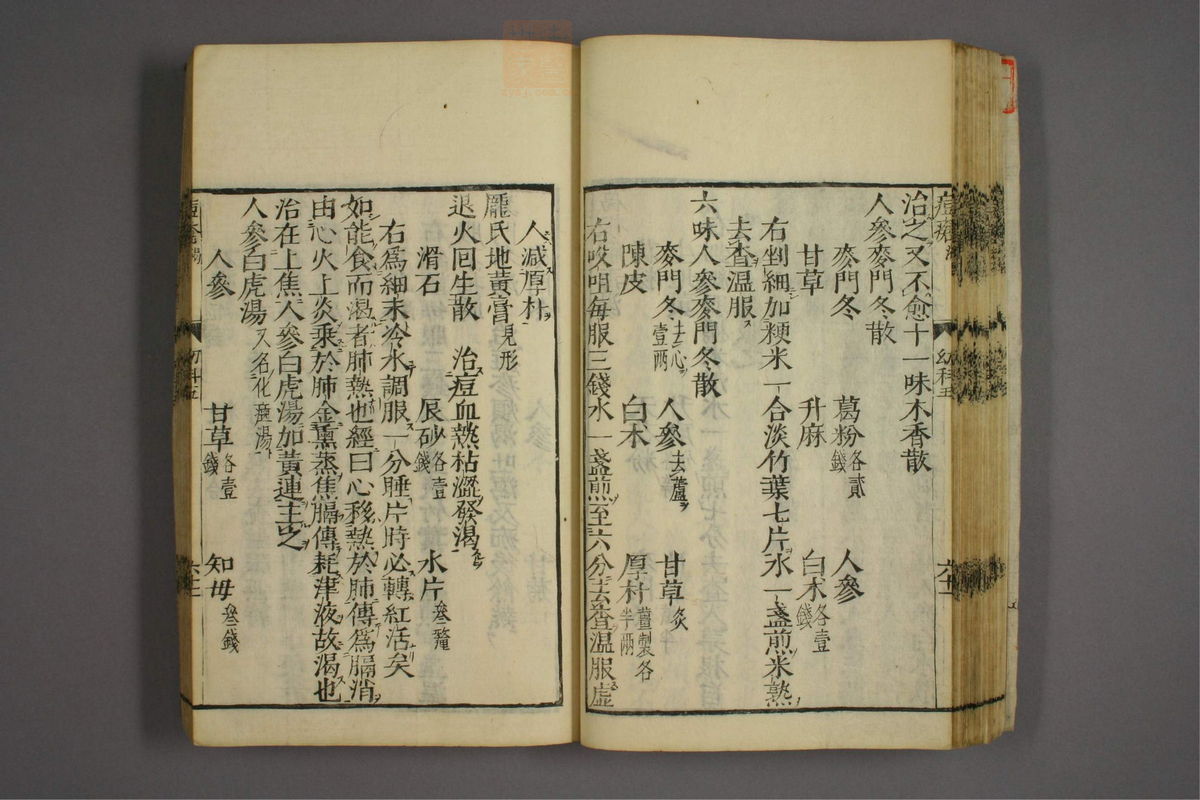 治之又不愈十一味木香散
人參麥門冬散
麥門冬 葛粉各貳錢 人參
甘草 升麻 白朮各壹錢
右剉細加粳米一合淡竹葉七片水一盞煎米熟
去楂溫服
六味人參麥門冬散
麥門冬去心壹兩 人參去蘆 甘草炙
陳皮 白朮 厚朴薑製各半兩
右㕮咀每服三錢水一盞煎至六分去楂溫服虛
人減厚朴
龐氏地黃膏見形
退火回生散 治痘血熱枯澀發渴
滑石 辰砂各壹錢 氷片叁釐
右爲細末冷水調服一分睡片時必轉紅活矣
如能食而渴者肺熱也經曰心移熱於肺傳爲膈消
由心火上炎乘於肺金熏蒸焦膈傳耗津液故渴也
治在上焦人參白虎湯加黃連主之
人參白虎湯又名化𤺋湯
人參 甘草各壹錢 知母叁錢
幼科五